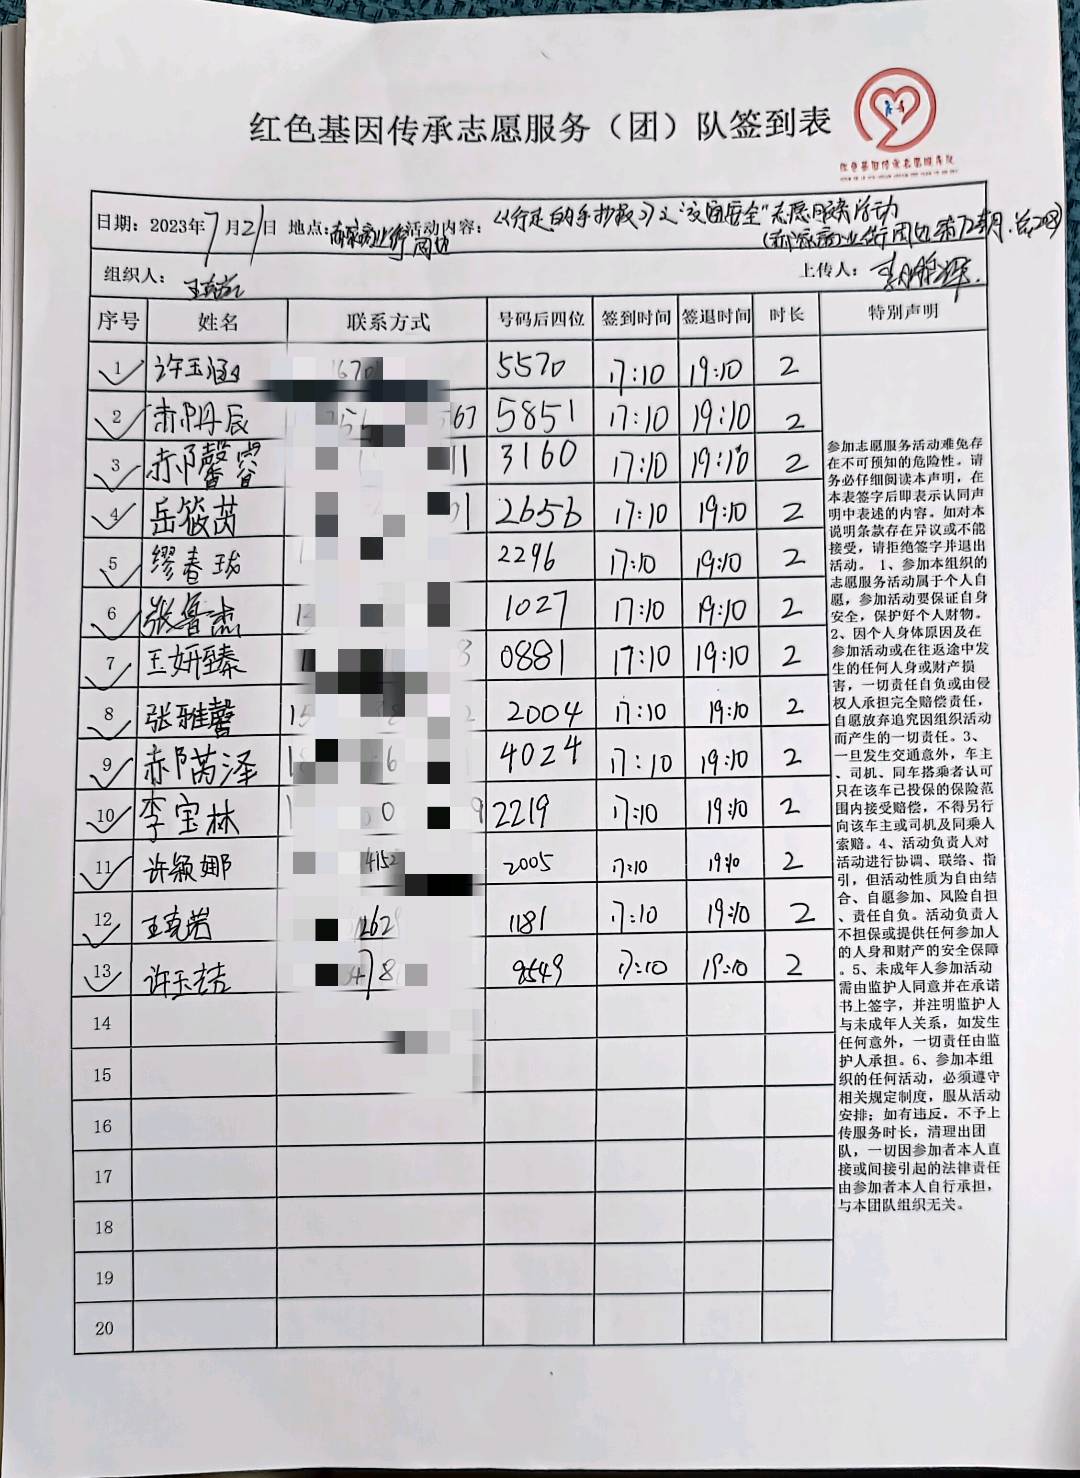 红色基因传承志愿服务（团）队签到表
红色基因传承志愿服务队
日期：2023年7月21日 地点： 活动内容：《行走的手抄报》之"交通安全"志愿服务活动
商业街周边 商业街周边第 期.总
组织人： 王克岩 上传人：
序号 姓名 联系方式 号码后四位 签到时间 签退时间 时长 特别声明
1 许玉涵 5570 17:10 19:10 2
2 郝丹辰 5851 17:10 19:10 2
3 郝馨睿 3160 17:10 19:10 2
4 岳筱芮 2656 17:10 19:10 2
5 缪春珑 2296 17:10 19:10 2
6 张鲁杰 1027 17:10 19:10 2
7 王妍臻 0881 17:10 19:10 2
8 张雅馨 2004 17:10 19:10 2
9 郝芮泽 4024 17:10 19:10 2
10 李宝林 2219 17:10 19:10 2
11 许颖娜 4152 2005 17:10 19:10 2
12 王克岩 1181 17:10 19:10 2
13 许玉洁 8549 17:10 19:10 2
14
15
16
17
18
19
20
参加志愿服务活动难免存
在不可预知的危险性。请
务必仔细阅读本声明，在
本表签字后即表示认同声
明中表述的内容。如对本
说明条款存在异议或不能
接受，请拒绝签字并退出
活动。 1、参加本组织的
志愿服务活动属于个人自
愿，参加活动要保证自身
安全，保护好个人财物。
2、因个人身体原因及在
参加活动或在往返途中发
生的任何人身或财产损
害，一切责任自负或由侵
权人承担完全赔偿责任，
自愿放弃追究因组织活动
而产生的一切责任。3、
一旦发生交通意外，车主
、司机、同车搭乘者认可
只在该车已投保的保险范
围内接受赔偿，不得另行
向该车主或司机及同乘人
索赔。4、活动负责人对
活动进行协调、联络、指
引，但活动性质为自由结
合、自愿参加、风险自担
、责任自负。活动负责人
不担保或提供任何参加人
的人身和财产的安全保障
。5、未成年人参加活动
需由监护人同意并在承诺
书上签字，并注明监护人
与未成年人关系，如发生
任何意外，一切责任由监
护人承担。6、参加本组
织的任何活动，必须遵守
相关规定制度，服从活动
安排；如有违反，不予上
传服务时长，清理出团
队，一切因参加者本人直
接或间接引起的法律责任
由参加者本人自行承担，
与本团队组织无关。